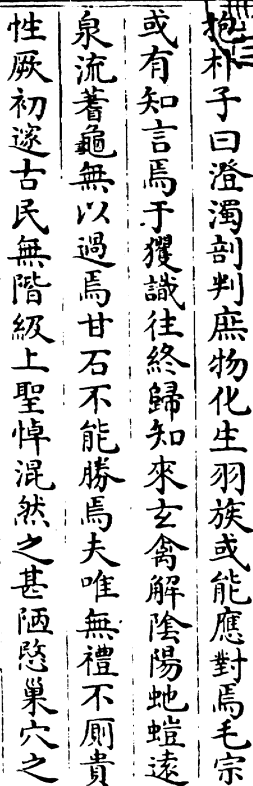 抱朴子曰澄濁剖判庶物化生羽族或能應對焉毛宗
或有知言焉于玃識往終歸知來玄禽解陰陽虵螘遠
泉流蓍龜無以過焉甘石不能勝焉夫唯無禮不厠貴
性厥初邃古民無階級上聖悼混然之甚陋愍巢穴之